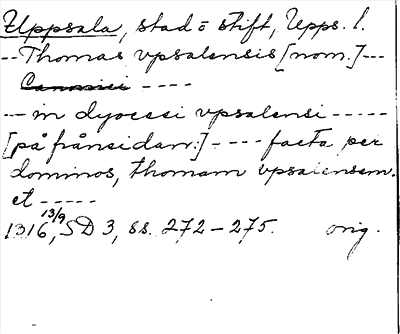 Uppsala, stad o stift, Upps. l.
-- Thomas vpsalensis [nom.] ---
Canonici ----
--- in dyocesi vpsalensi -----
[på frånsidan:] ---- facta per
dominos, thomam vpsalensem.
et -----
1316 13/9, SD 3, ss. 272-275. orig.